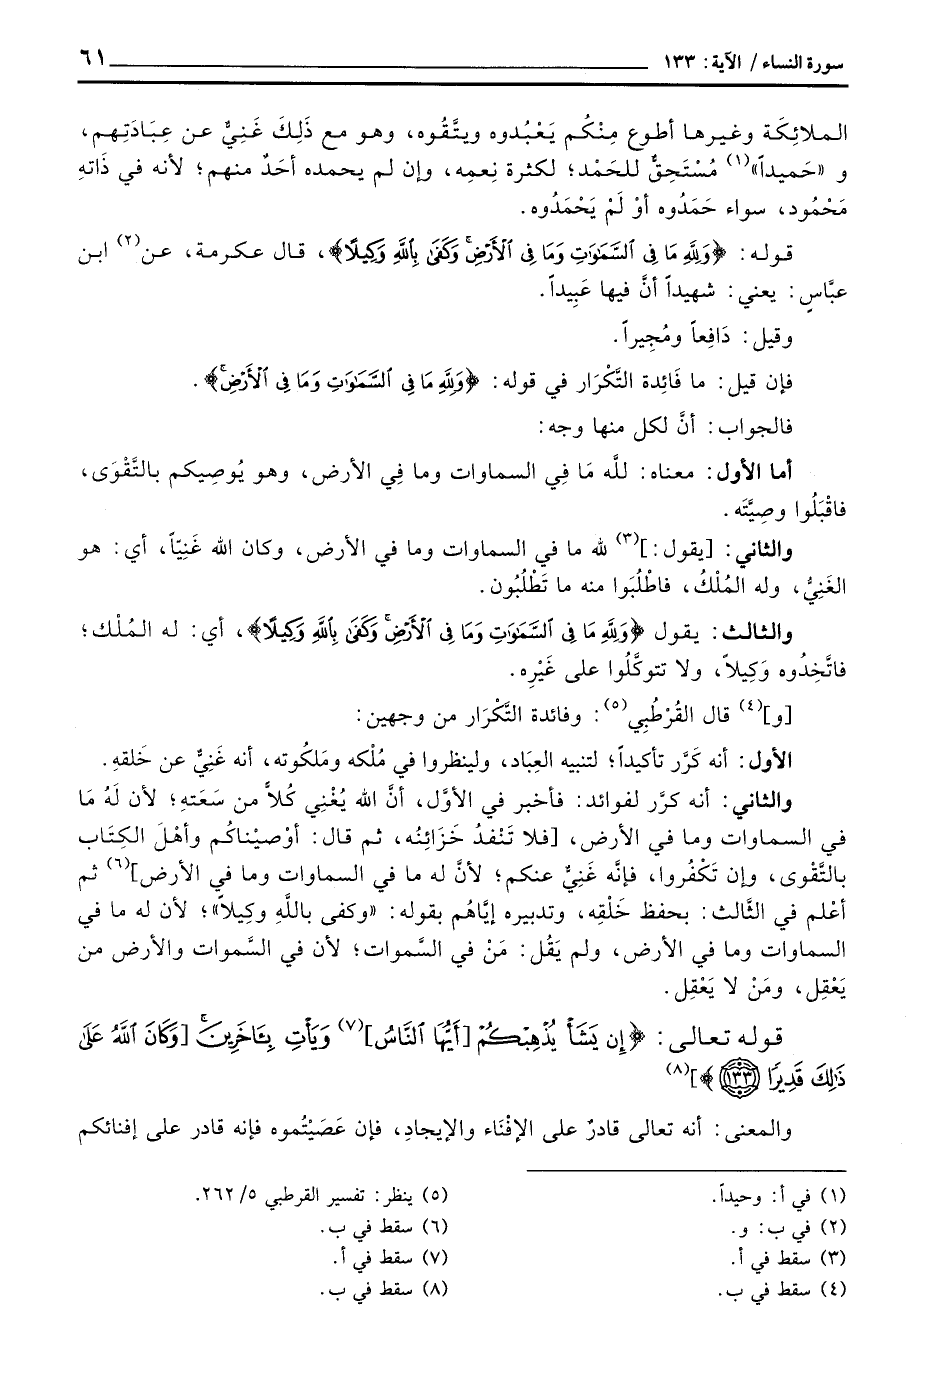 سورة النساء/ الآية: ١٣٣ ٦١
الملائِكَة وغيرها أطوع مِنْكُم يَعْبُدوه ويتَّقُوه، وهو مع ذَلِكَ غَنِيٌّ عن عِبَادَتِهم،
و «حَميداً»(١) مُسْتَحِقٌّ للحَمْد؛ لكثرة نِعمِه، وإن لم يحمده أحَدٌ منهم؛ لأنه في ذَاتهِ
مَحْمُود، سواء حَمَدُوه أوْ لَمْ يَحْمَدُوه.
قوله: ﴿وَلِلَّهِ مَا فِي السَّمَٰوَٰتِ وَمَا فِي ٱلْأَرْضِۚ وَكَفَىٰ بِٱللَّهِ وَكِيلًا﴾، قال عكرمة، عن(٢) ابن
عبَّاسٍ: يعني: شهيداً أنَّ فيها عَبِيداً.
وقيل: دَافِعاً ومُجِيراً.
فإن قيل: ما فَائِدة التَّكْرَار في قوله: ﴿وَلِلَّهِ مَا فِي ٱلسَّمَٰوَٰتِ وَمَا فِي ٱلْأَرْضِۚ﴾.
فالجواب: أنَّ لكل منها وجه:
أما الأول: معناه: للَّه مَا فِي السماوات وما فِي الأرض، وهو يُوصِيكم بالتَّقْوَى،
فاقْبَلُوا وصِيَّتَه.
والثاني: [يقول:](٣) لله ما في السماوات وما في الأرض، وكان الله غَنِيّاً، أي: هو
الغَنِيُّ، وله المُلْكُ، فاطْلُبَوا منه ما تَطْلُبُون.
والثالث: يقول ﴿وَلِلَّهِ مَا فِي ٱلسَّمَٰوَٰتِ وَمَا فِي ٱلْأَرْضِۚ وَكَفَىٰ بِٱللَّهِ وَكِيلًا﴾، أي: له الملك؛
فاتَّخِذُوه وَكِيلاً، ولا تتوكَّلُوا على غَيْرِه.
[و](٤) قال القُرْطُبِي(٥): وفائدة التَّكْرَار من وجهين:
الأول: أنه كَرَّر تأكيداً؛ لتنبيه العِبَاد، ولينظروا في مُلْكه ومَلكُوته، أنه غَنِيٌّ عن خَلقهِ.
والثاني: أنه كرَّر لفوائد: فأخبر في الأوَّل، أنَّ الله يُغْنِي كُلاًّ من سَعَتهِ؛ لأن لَهُ مَا
في السماوات وما في الأرض، [فلا تَنْفدُ خَزَائِنُه، ثم قال: أوْصيْناكُم وأهْلَ الكِتَاب
بالتَّقْوى، وإن تَكْفُروا، فإنَّه غَنِيٌّ عنكم؛ لأنَّ له ما في السماوات وما في الأرض](٦) ثم
أعْلم في الثَّالث: بحفظ خَلْقِه، وتدبيره إيَّاهُم بقوله: «وكفى باللَّهِ وكِيلاً»؛ لأن له ما في
السماوات وما في الأرض، ولم يَقُل: مَنْ في السَّموات؛ لأن في السَّموات والأرض من
يَعْقِل، ومَنْ لا يَعْقِل.
قوله تعالى: ﴿إِن يَشَأْ يُذْهِبْكُمْ [أَيُّهَا ٱلنَّاسُ](٧) وَيَأْتِ بِـَٔاخَرِينَۚ [وَكَانَ ٱللَّهُ عَلَىٰ
ذَٰلِكَ قَدِيرًا ١٣٣﴾](٨)
والمعنى: أنه تعالى قادرٌ على الإفْنَاء والإيجادِ، فإن عَصَيْتُموه فإنه قادر على إفنائكم
(١) في أ: وحيداً.
(٢) في ب: و.
(٣) سقط في أ.
(٤) سقط في ب.
(٥) ينظر: تفسير القرطبي ٥/ ٢٦٢.
(٦) سقط في ب.
(٧) سقط في أ.
(٨) سقط في ب.